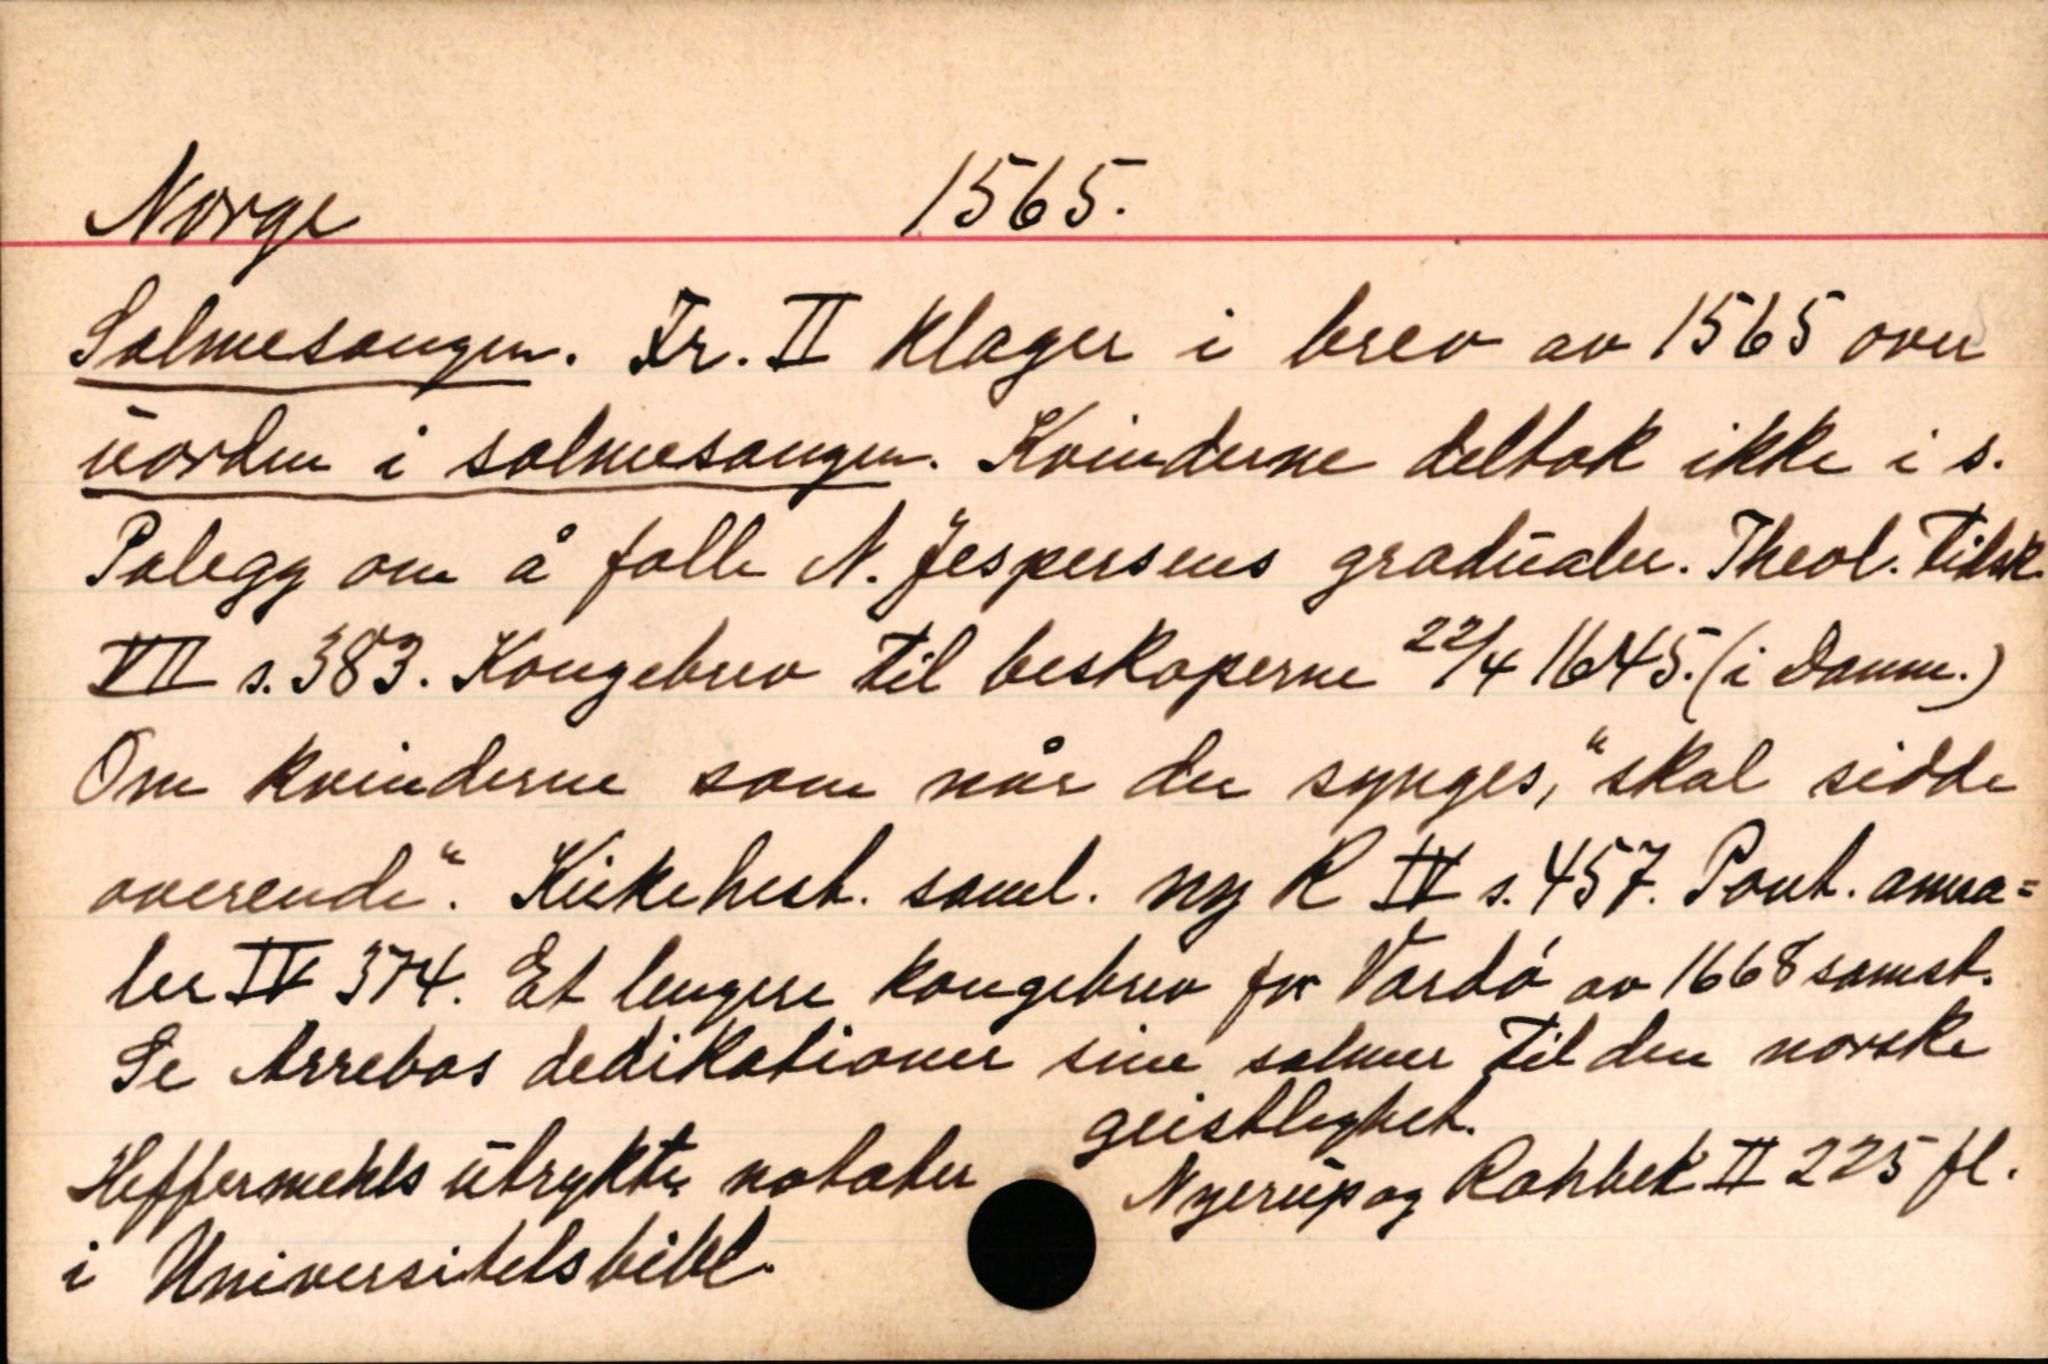 Norge 1565.
Salmesangen. Fr. II klager i brev av 1565 over
uorden i salmesangen. Kvinderne deltok ikke i s.
Palegg om å følle N. Jespersens gradualer. Theol. Tidsk.
VII s. 383. Kongebrev til beskoperne 22/4 1645. (i Danm.)
Om kvinderne som når der synges, "skal sidde
overende". Kirkehist. saml. ny R IV s. 457. Pont. anna=
ler IV 374. Et lengere kongebrev for Vardö av 1668 samst.
Se Arrebos dedikationer sine salmer til den norske
geistlighet.
Heffermehls utrykte notater
i Universitetsbibl.
Nyerup og Rahbek II 225 fl.